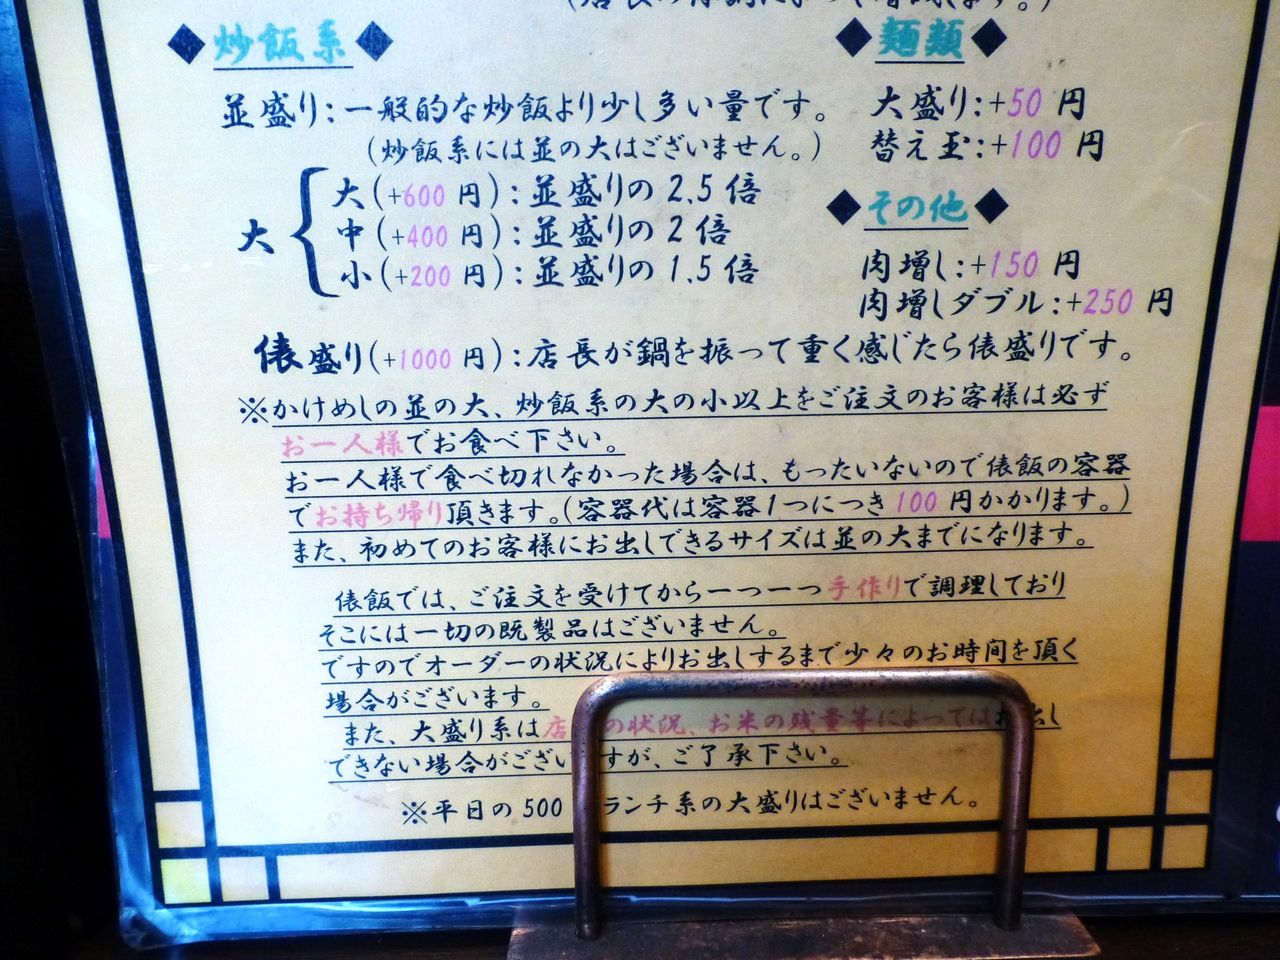 ◆炒飯系◆
並盛り:一般的な炒飯より少し多い量です。
(炒飯系には並の大はございません。)
大
大(+600 円):並盛りの 2.5 倍
中(+400 円):並盛りの 2 倍
小(+200 円):並盛りの 1.5 倍
俵盛り(+1000 円):店長が鍋を振って重く感じたら俵盛りです。
◆麺類◆
大盛り:+50 円
替え玉:+100 円
◆その他◆
肉増し:+150 円
肉増しダブル:+250 円
※かけめしの並の大、炒飯系の大の小以上をご注文のお客様は必ず
お一人様でお食べ下さい。
お一人様で食べ切れなかった場合は、もったいないので俵飯の容器
でお持ち帰り頂きます。(容器代は容器1つにつき 100 円かかります。)
また、初めてのお客様にお出しできるサイズは並の大までになります。
俵飯では、ご注文を受けてから一つ一つ手作りで調理しており
そこには一切の既製品はございません。
ですのでオーダーの状況によりお出しするまで少々のお時間を頂く
場合がございます。
また、大盛り系は店 の状況、お米の残量等によってはお出し
できない場合がござい すが、ご了承下さい。
※平日の 500 ランチ系の大盛りはございません。